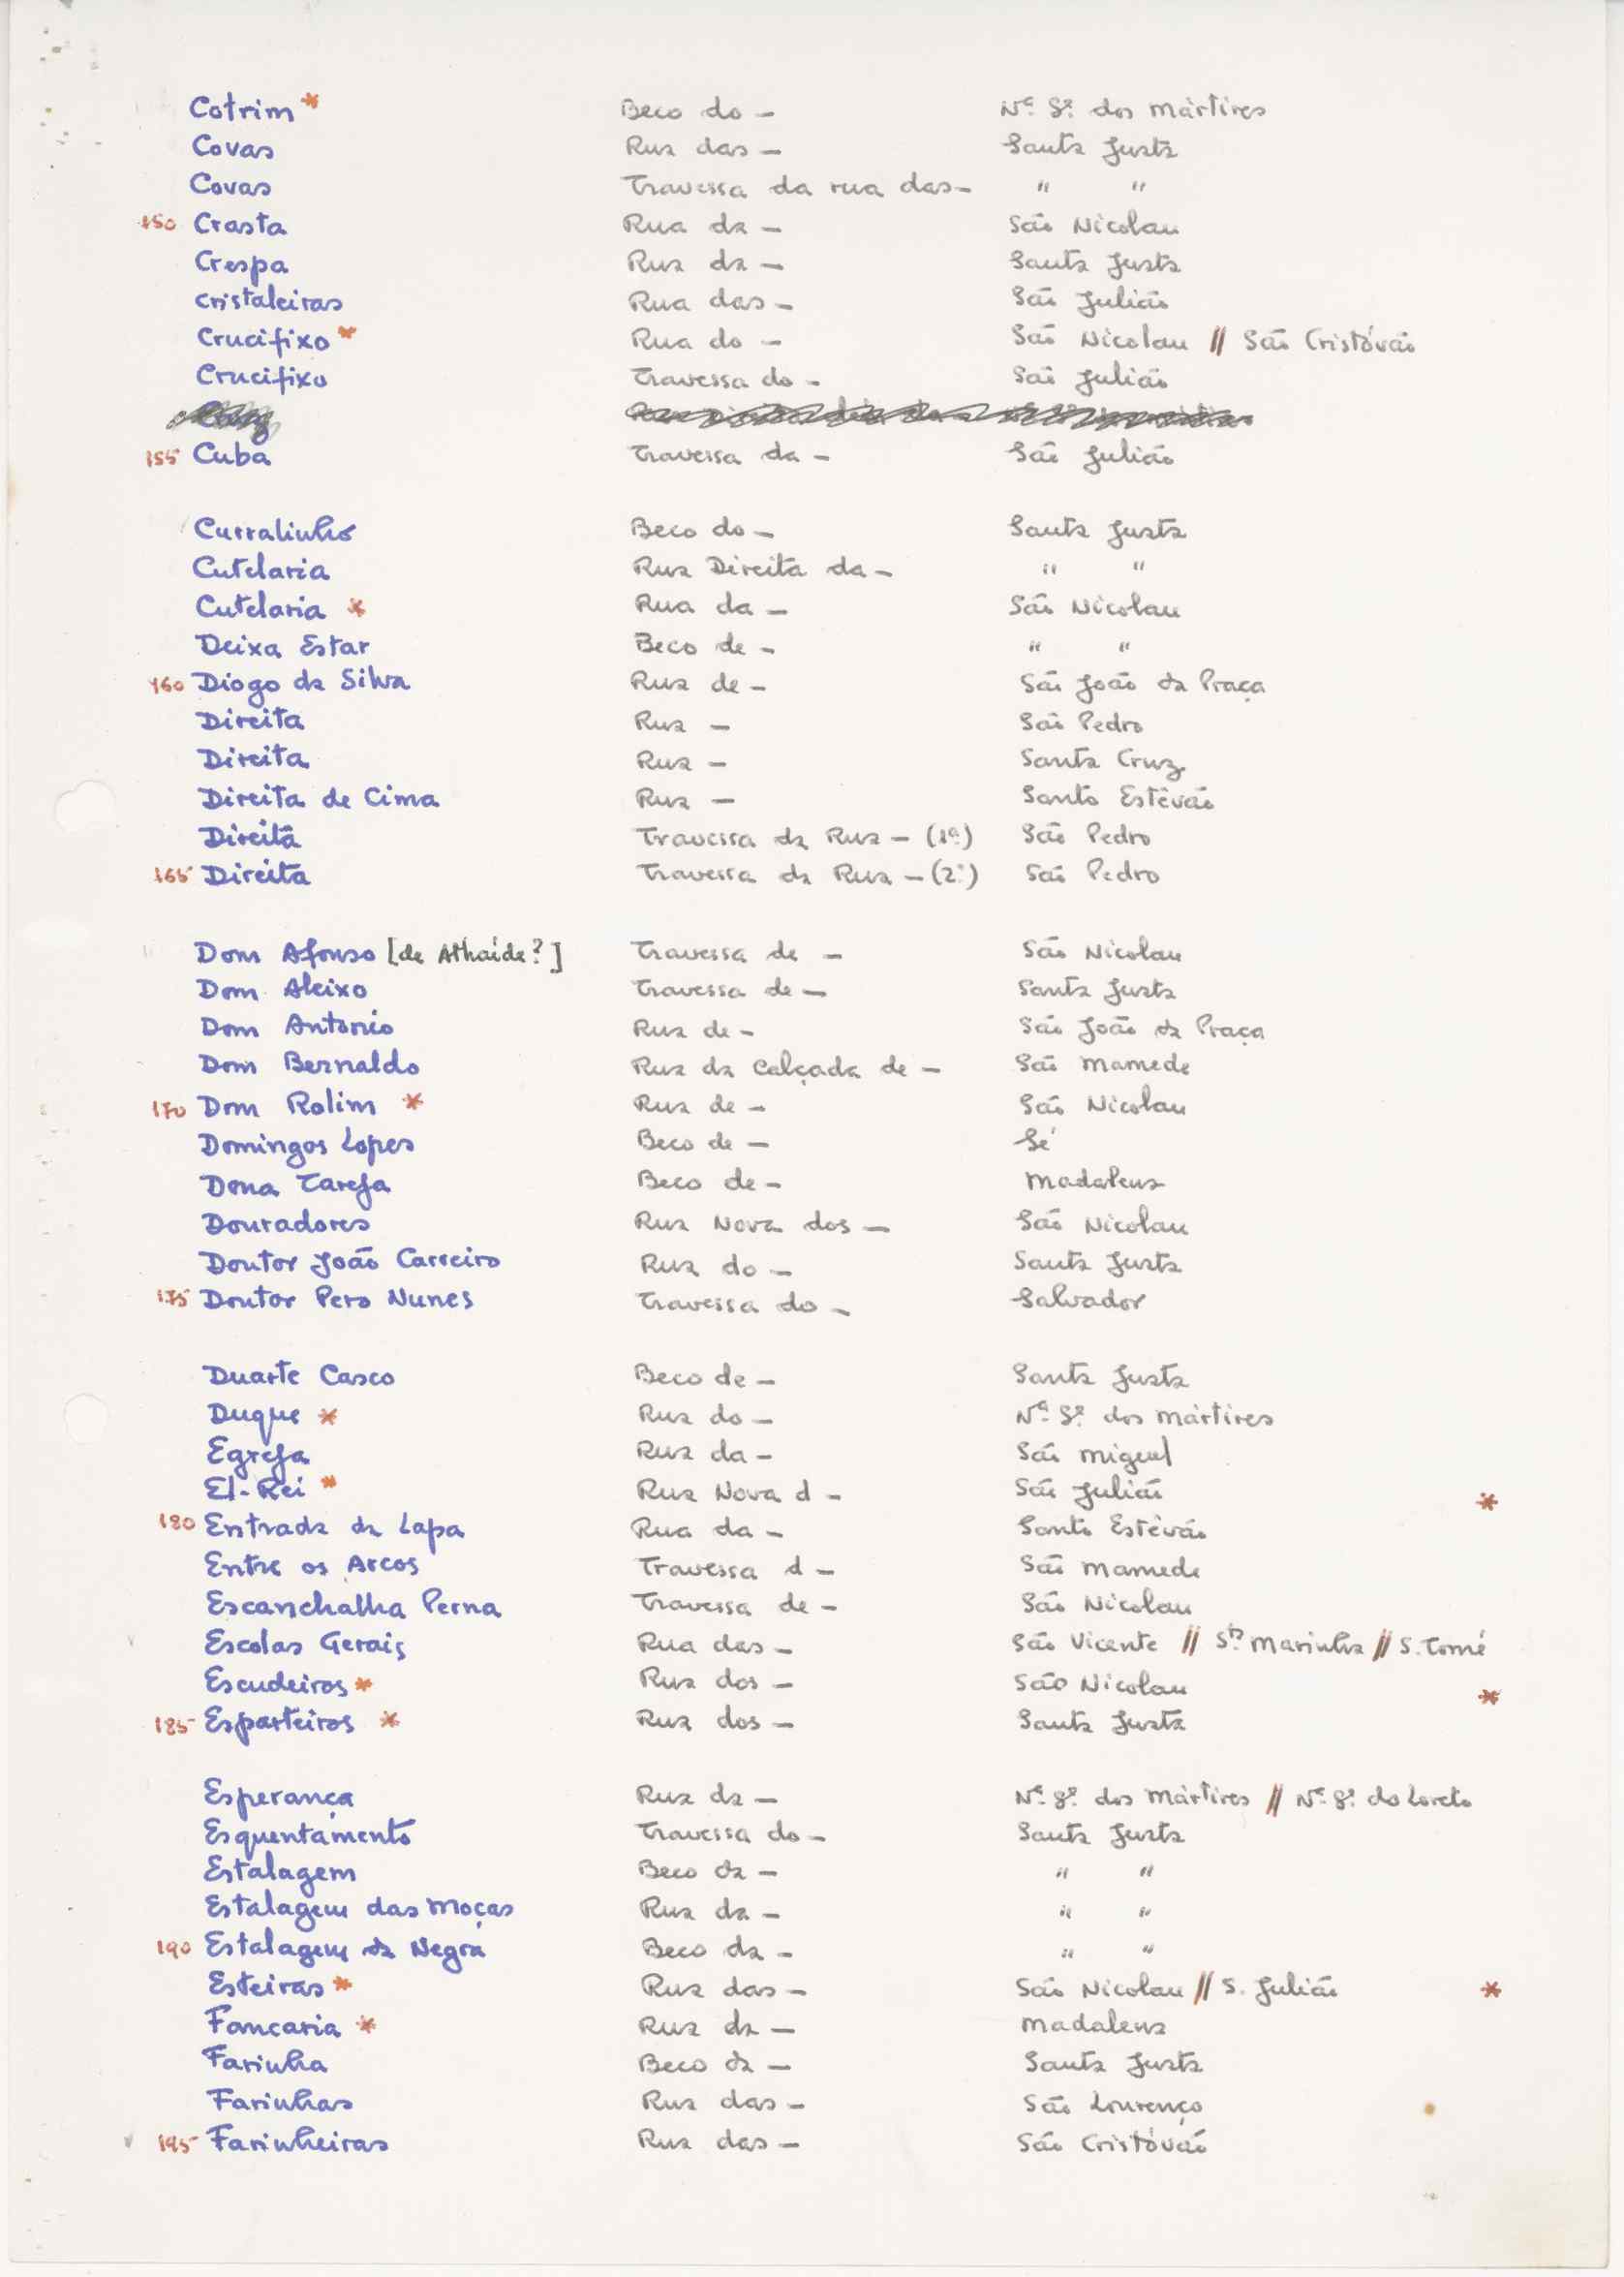 Cotrim * Beco do - Nª. Sª. dos Mártires
Covas Rua das - Santa Justa
Covas Travessa da rua das - " "
150 Crasta Rua da - São Nicolau
Crespa Rua da - Santa Justa
Cristaleiras Rua das - São Julião
Crucifixo * Rua do - São Nicolau // São Cristóvão
Crucifixo Travessa do - São Julião
155 Cuba Travessa da - São Julião
Curralinho Beco do - Santa Justa
Cutelaria Rua Direita da - " "
Cutelaria * Rua da - São Nicolau
Deixa Estar Beco de - " "
160 Diogo da Silva Rua de - São João da Praça
Direita Rua - São Pedro
Direita Rua - Santa Cruz
Direita de Cima Rua - Santo Estêvão
Direita Travessa da Rua - (1ª) São Pedro
165 Direita Travessa da Rua - (2ª) São Pedro
Dom Afonso [de Athaíde?] Travessa de - São Nicolau
Dom Aleixo Travessa de - Santa Justa
Dom Antonio Rua de - São João da Praça
Dom Bernaldo Rua da Calçada de - São Mamede
170 Dom Rolim * Rua de - São Nicolau
Domingos Lopes Beco de - Sé
Dona Tareja Beco de - Madalena
Douradores Rua Nova dos - São Nicolau
Doutor João Carreiro Rua do - Santa Justa
175 Doutor Pero Nunes Travessa do - Salvador
Duarte Casco Beco de - Santa Justa
Duque * Rua do - Nª. Sª. dos Mártires
Egreja Rua da - São Miguel
El-Rei * Rua Nova d - São Julião *
180 Entrada da Lapa Rua da - Santo Estêvão
Entre os Arcos Travessa d - São Mamede
Escanchalha Perna Travessa de - São Nicolau
Escolas Gerais Rua das - São Vicente // Stª Marinha // S. Tomé
Escudeiros * Rua dos - São Nicolau *
185 Esparteiros * Rua dos - Santa Justa
Esperança Rua da - Nª. Sª. dos Mártires // Nª. Sª. do Loreto
Esquentamento Travessa do - Santa Justa
Estalagem Beco da - " "
Estalagem das Moças Rua da - " "
190 Estalagem da Negra Beco da - " "
Esteiras * Rua das - São Nicolau // S. Julião *
Fancaria * Rua da - Madalena
Farinha Beco da - Santa Justa
Farinhas Rua das - São Lourenço
195 Farinheiras Rua das - São Cristóvão